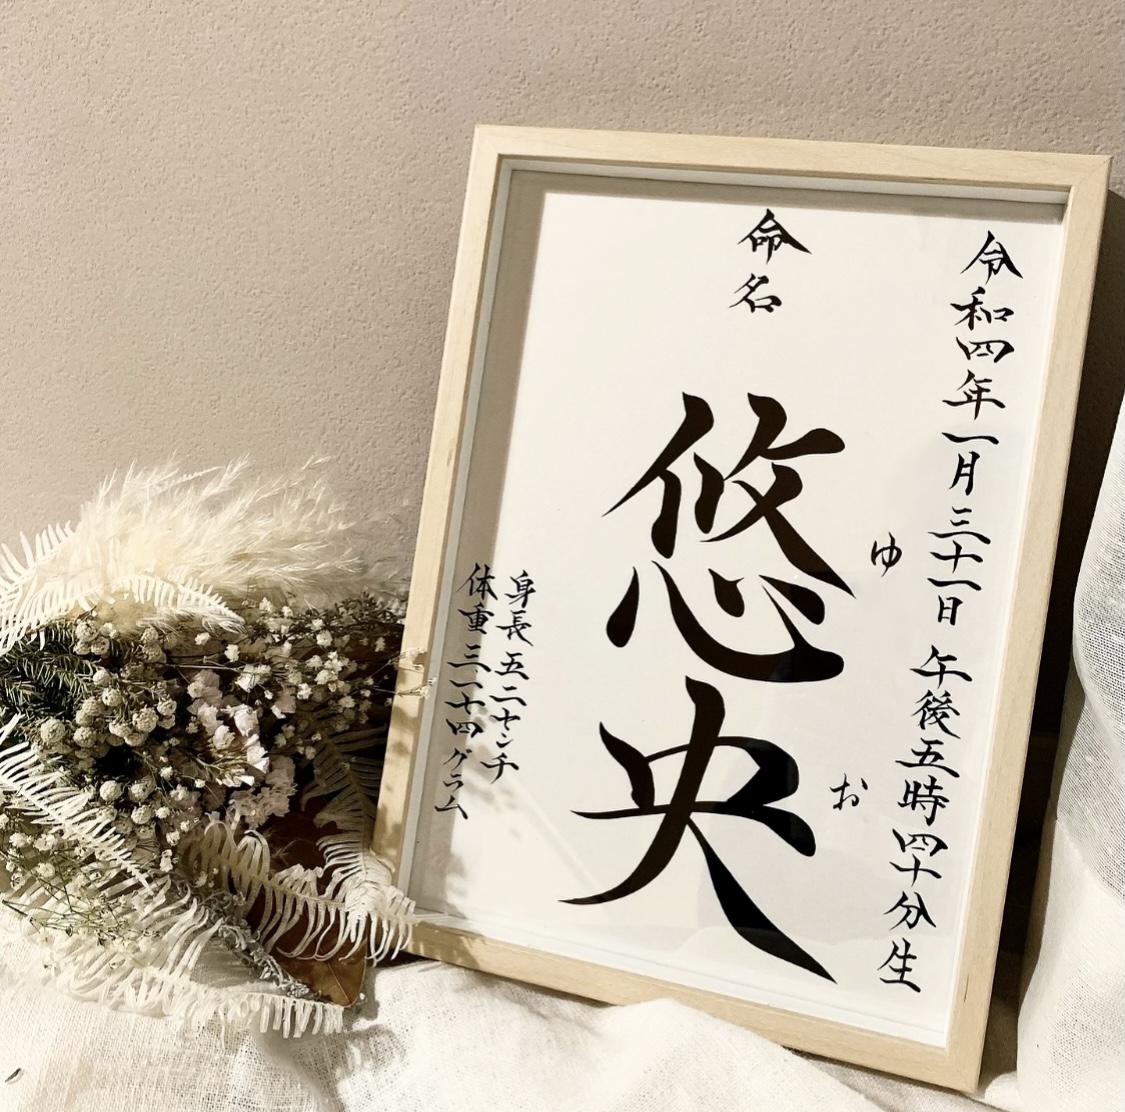 令和四年一月三十一日 午後五時四十分生
命名
悠央
ゆ お
身長 五二センチ
体重 三一十四グラム